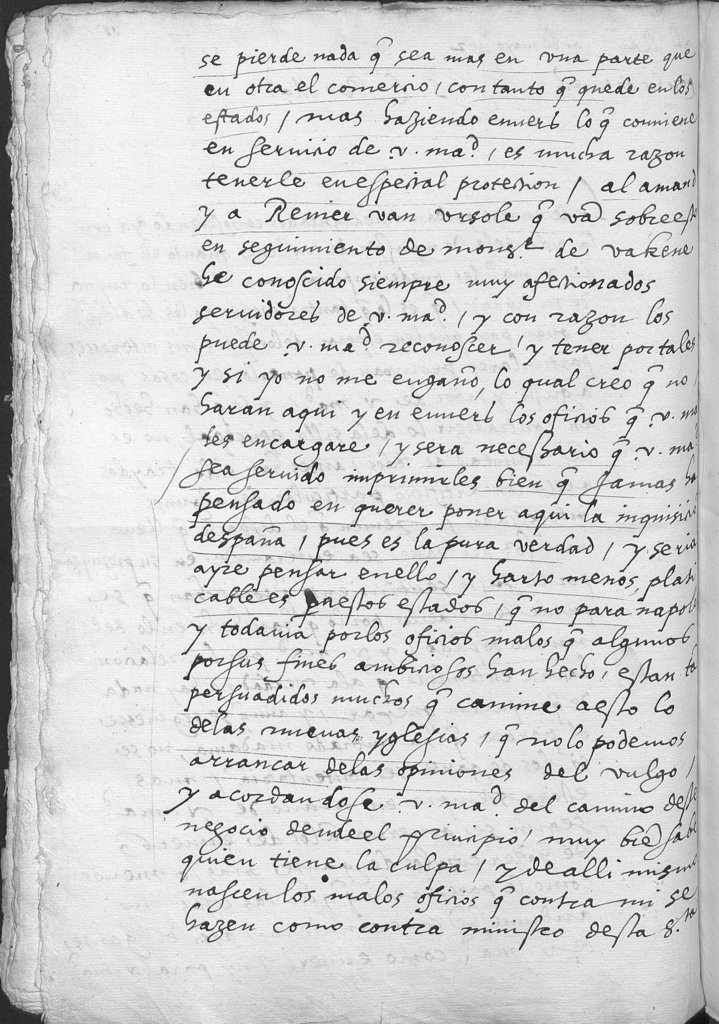 se pierde nada q̃ sea mas en vna parte que
en otra el comercio / con tanto q̃ quede en los
estados / mas haziendo envers lo q̃ conviene
en servicio de .v. mad. / es mucha razon
tenerle en especial protection / al aman
y a Renier van vrsole q̃ vā sobre est
en seguimiento de monsr. de vakene
he conoscido siempre muy afecionados
servidores de .v. mad. / y con razon los
puede .v. mad. reconoscer / y tener por tales
y si yo no me engaño, lo qual creo q̃ no /
haran aqui y en envers los oficios q̃ .v. ma
les encargare / y sera necessario q̃ .v. ma
sea servido imprimirles bien q̃ jamas ha
pensado en querer poner aqui la inquisicio
despaña / pues es la pura verdad / y seria
ayre pensar en ello / y harto menos plati
cable es pa estos estados / q̃ no para napol
y todavia por los oficios malos q̃ algunos
por sus fines ambiciosos han hecho / estan tā
persuadidos muchos q̃ camine a esto lo
de las nuevas yglesias / q̃ no lo podemos
arrancar de las opiniones del vulgo /
y acordandose .v. mad. del camino deste
negocio dende el principio / muy biē sabe
quien tiene la culpa / y de alli mismo
nascen los malos oficios q̃ contra mi se
hazen como contra ministro desta s.ta